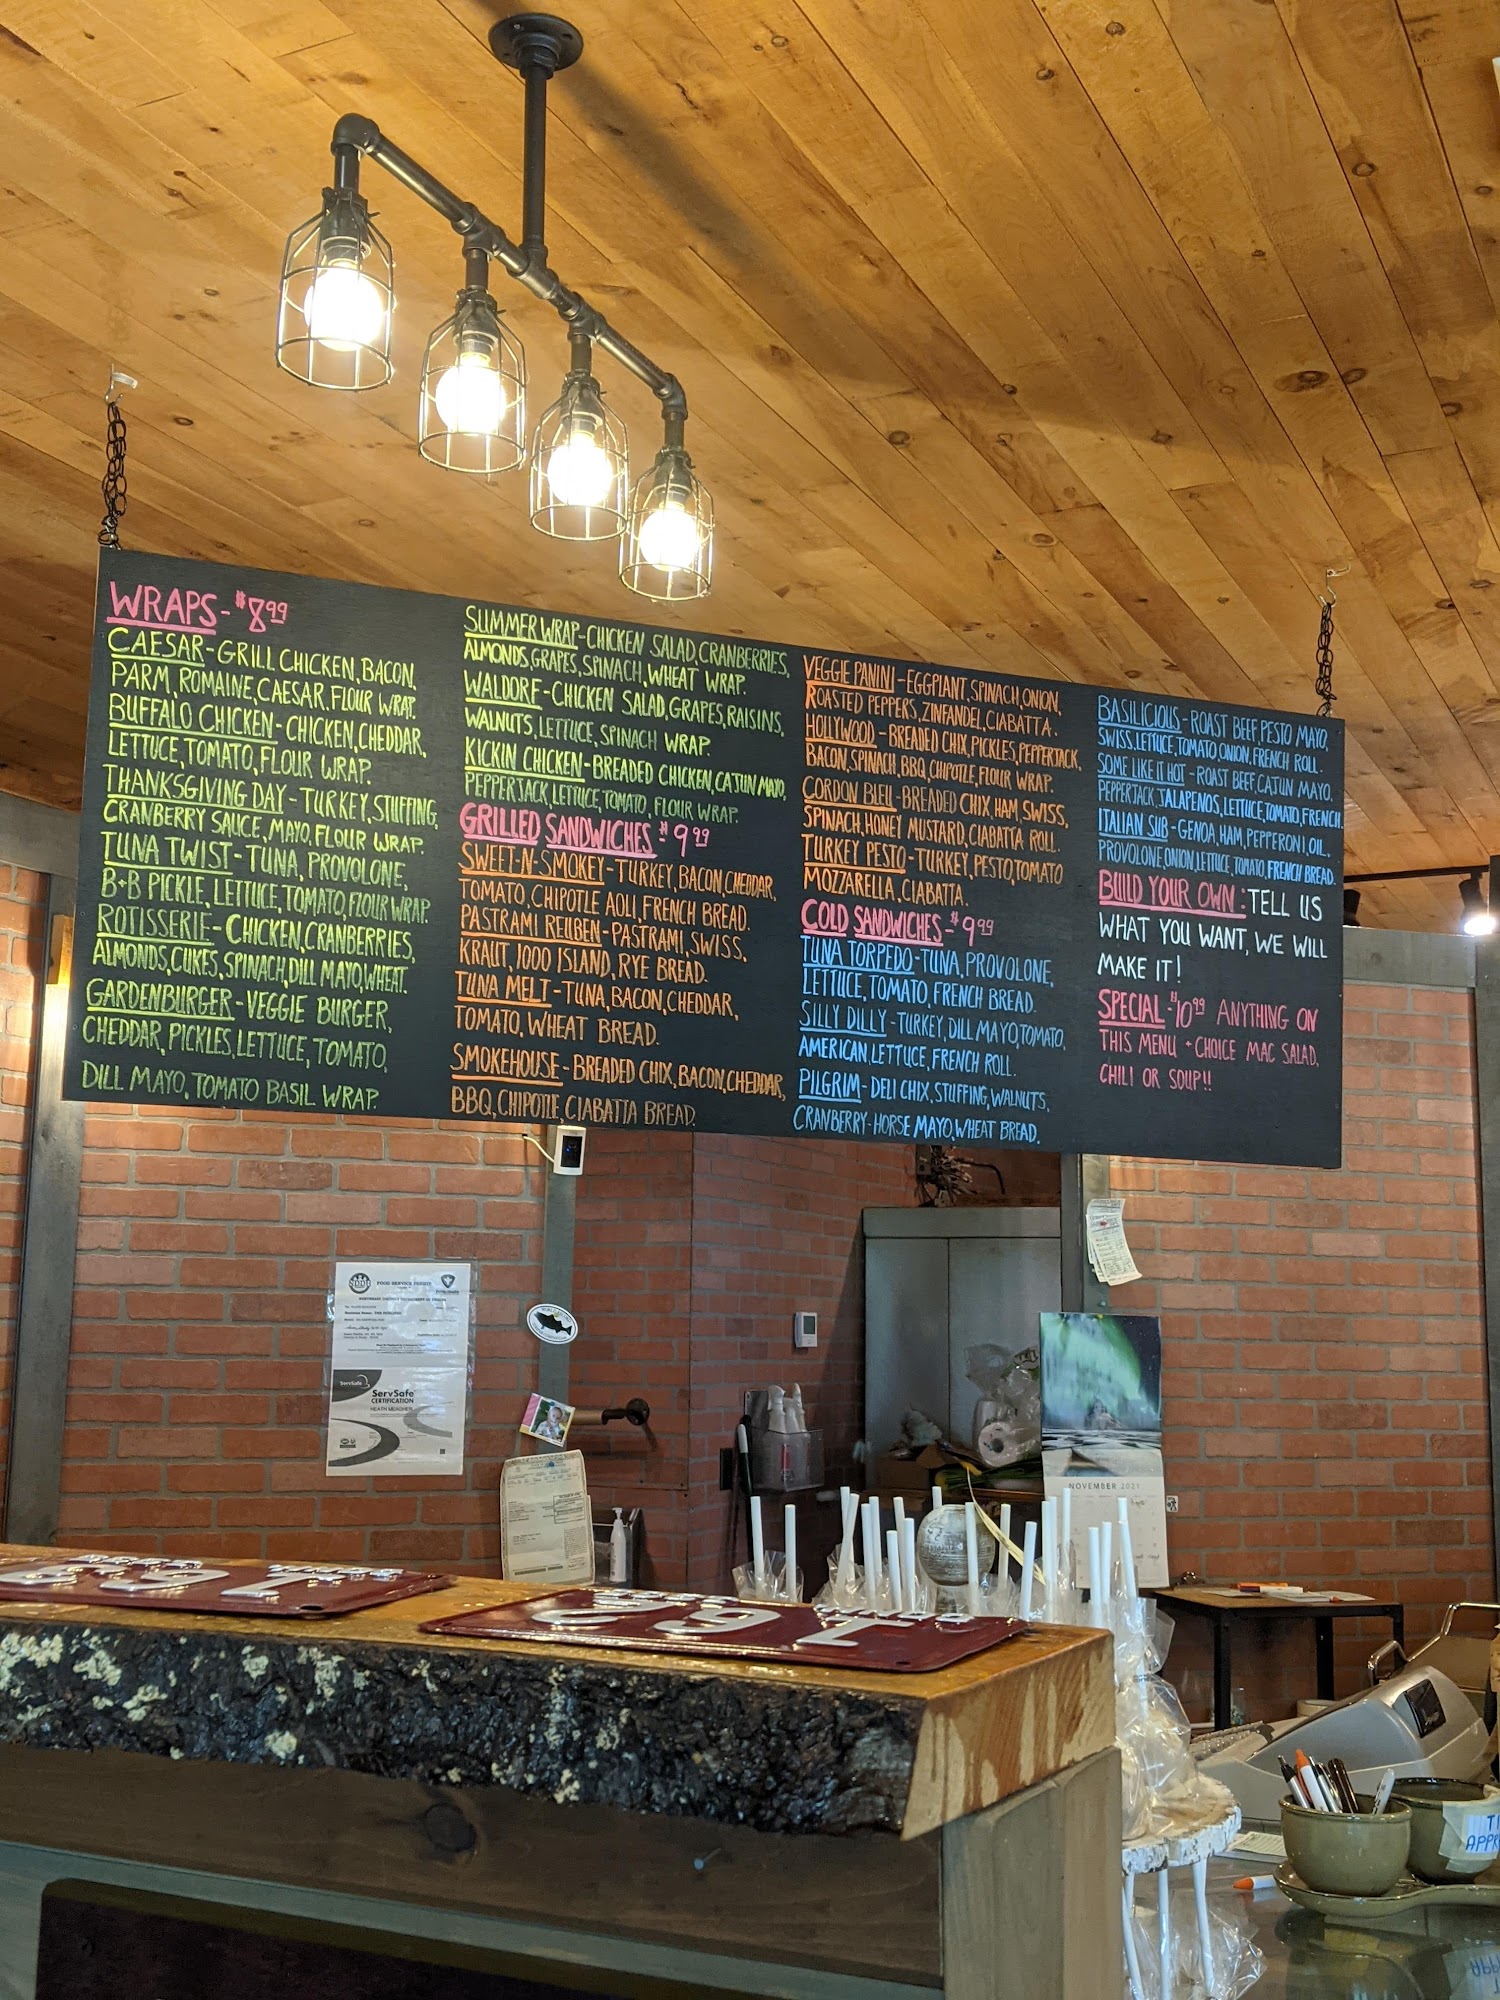 WRAPS-$8.99
CAESAR-GRILL CHICKEN, BACON,
PARM, ROMAINE, CAESAR, FLOUR WRAP.
BUFFALO CHICKEN-CHICKEN, CHEDDAR,
LETTUCE, TOMATO, FLOUR WRAP.
THANKSGIVING DAY-TURKEY, STUFFING,
CRANBERRY SAUCE, MAYO, FLOUR WRAP.
TUNA TWIST-TUNA, PROVOLONE,
B+B PICKLE, LETTUCE, TOMATO, FLOUR WRAP.
ROTISSERIE-CHICKEN, CRANBERRIES,
ALMONDS, CUKES, SPINACH, DILL MAYO, WHEAT.
GARDENBURGER-VEGGIE BURGER,
CHEDDAR, PICKLES, LETTUCE, TOMATO,
DILL MAYO, TOMATO BASIL WRAP.
SUMMER WRAP-CHICKEN SALAD, CRANBERRIES,
ALMONDS, GRAPES, SPINACH, WHEAT WRAP.
WALDORF-CHICKEN SALAD, GRAPES, RAISINS,
WALNUTS, LETTUCE, SPINACH WRAP.
KICKIN CHICKEN-BREADED CHICKEN, CAJUN MAYO,
PEPPERJACK, LETTUCE, TOMATO, FLOUR WRAP.
GRILLED SANDWICHES $9.99
SWEET-N-SMOKEY-TURKEY, BACON, CHEDDAR,
TOMATO, CHIPOTLE AOLI, FRENCH BREAD.
PASTRAMI REUBEN-PASTRAMI, SWISS,
KRAUT, 1000 ISLAND, RYE BREAD.
TUNA MELT-TUNA, BACON, CHEDDAR,
TOMATO, WHEAT BREAD.
SMOKEHOUSE-BREADED CHIX, BACON, CHEDDAR,
BBQ, CHIPOTLE, CIABATTA BREAD.
VEGGIE PANINI-EGGPLANT, SPINACH, ONION,
ROASTED PEPPERS, ZINFANDEL, CIABATTA.
HOLLYWOOD-BREADED CHIX, PICKLES, PEPPERJACK,
BACON, SPINACH, BBQ, CHIPOTLE, FLOUR WRAP.
CORDON BLEU-BREADED CHIX, HAM, SWISS,
SPINACH, HONEY MUSTARD, CIABATTA ROLL.
TURKEY PESTO-TURKEY, PESTO, TOMATO
MOZZARELLA, CIABATTA.
COLD SANDWICHES-$9.99
TUNA TORPEDO-TUNA, PROVOLONE,
LETTUCE, TOMATO, FRENCH BREAD.
SILLY DILLY-TURKEY, DILL MAYO, TOMATO,
AMERICAN, LETTUCE, FRENCH ROLL.
PILGRIM-DELI CHIX, STUFFING, WALNUTS,
CRANBERRY-HORSE MAYO, WHEAT BREAD.
BASILICIOUS-ROAST BEEF, PESTO MAYO,
SWISS, LETTUCE, TOMATO ONION, FRENCH ROLL.
SOME LIKE IT HOT-ROAST BEEF, CAJUN MAYO,
PEPPERJACK, JALAPENOS, LETTUCE, TOMATO, FRENCH.
ITALIAN SUB-GENOA, HAM, PEPPERONI, OIL,
PROVOLONE, ONION, LETTUCE, TOMATO, FRENCH BREAD.
BUILD YOUR OWN: TELL US
WHAT YOU WANT, WE WILL
MAKE IT!
SPECIAL-$10.99 ANYTHING ON
THIS MENU + CHOICE MAC SALAD,
CHILI OR SOUP!!
FOOD SERVICE PERMIT
ServSafe
ServSafe
CERTIFICATION
HEATH MEACHEM
NOVEMBER 2021
163
162